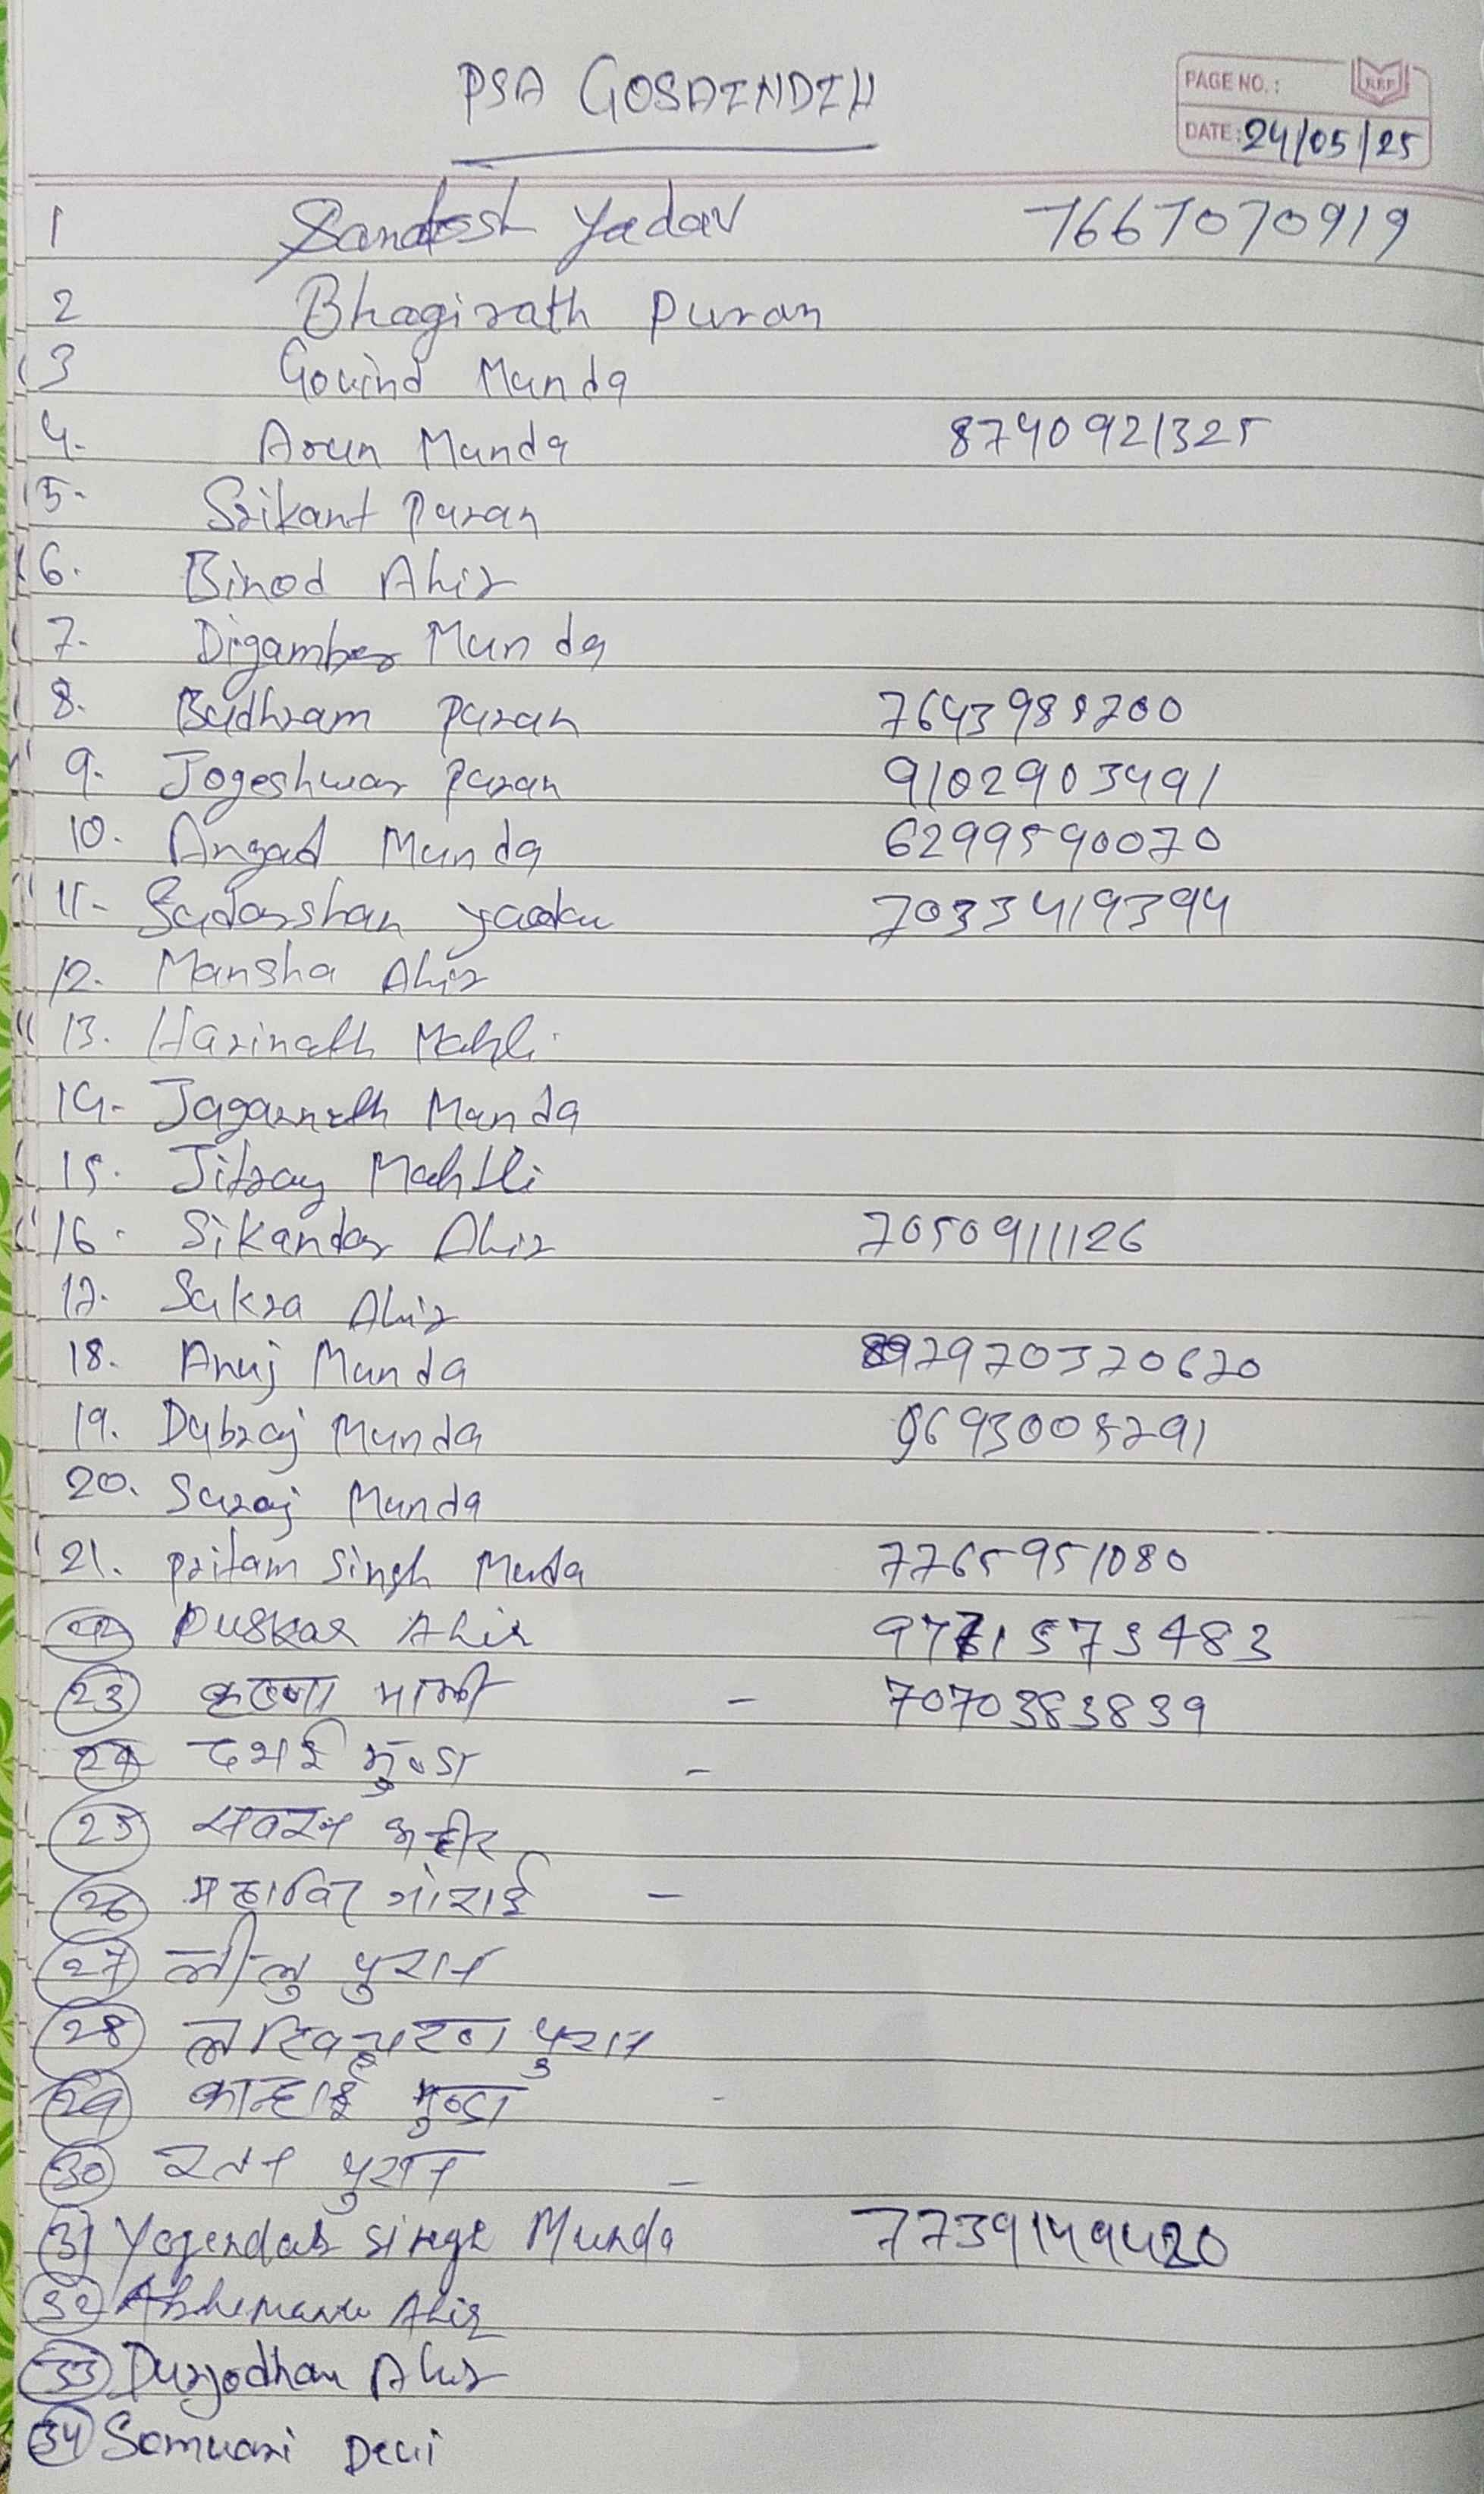 PSA GOSAINDIH
PAGE NO.:
DATE: 24/05/25
1 Santosh Yadav 7667070919
2 Bhagirath Puran
3 Govind Munda
4. Arun Munda 8740921325
5. Srikant Puran
6. Binod Ahir
7. Digamber Munda
8. Budhram Puran 7643989200
9. Jogeshwar Puran 9102903491
10. Angad Munda 6299590070
11- Sudarshan 7033419394
12. Mansha Ahir
13. Harinath Mahli
14- Jagarnath Munda
15. Jitray Mahli
16. Sikandar Ahir 7050911126
17. Sukra Ahir
18. Anuj Munda 7970320620
19. Dubraj Munda 9693005291
20. Suraj Munda
21. Pritam Singh Munda 7765951080
22 Puskar Ahir 573483
23 - 7070383839
24 मुण्डा -
25 अहीर
26 महाविर गोराई -
27 पुरान
28 पुरान
29 कान्हाई मुण्डा -
30 रतन पुरान -
31 Yogendar singh Munda 7739149420
32 Abhemanu Ahir
33 Durjodhan Ahir
34 Somwari Devi